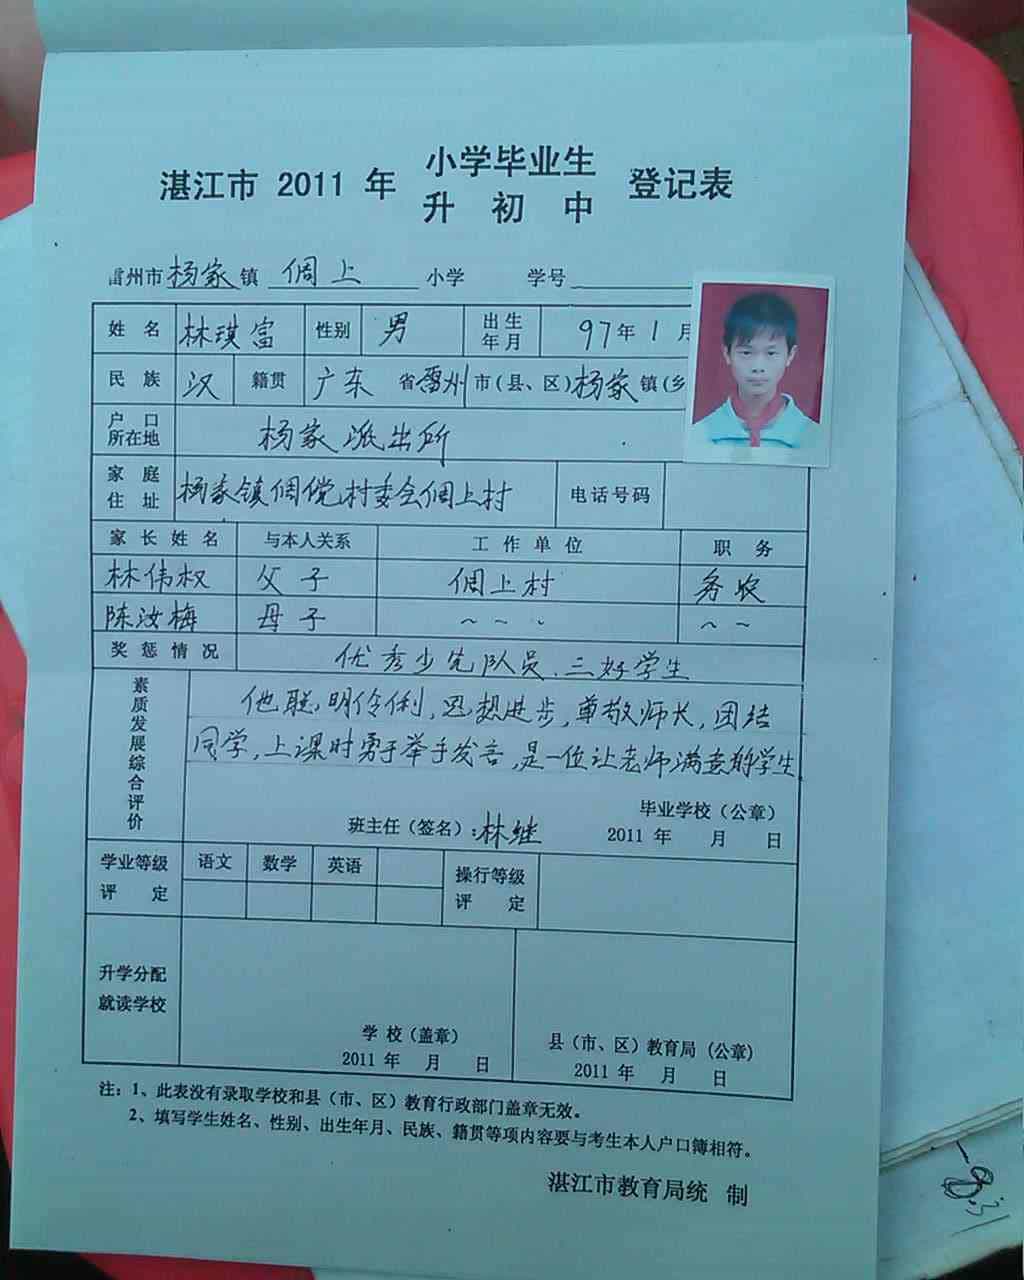 湛江市 2011 年 小学毕业生 登记表
升 初 中
雷州市杨家镇 倜上 小学 学号
姓 名 林琪富 性别 男 出生年月 97年1月
民 族 汉 籍贯 广东 省雷州市(县、区)杨家镇(乡
户 口 所在地 杨家派出所
家 庭 住 址 杨家镇倜傥村委会倜上村 电话号码
家 长 姓 名 与本人关系 工 作 单 位 职 务
林伟权 父子 倜上村 务农
陈汝梅 母子 ~ ~ ~ ~ ~
奖 惩 情 况 优秀少先队员、三好学生
素质发展综合评价
他聪明伶俐,思想进步,尊敬师长,团结
同学,上课时勇于举手发言,是一位让老师满意的学生
毕业学校(公章)
班主任(签名):林继 2011 年 月 日
学业等级 评 定 语文 数学 英语 操行等级 评 定
升学分配 就读学校
学 校(盖章) 县(市、区)教育局(公章)
2011 年 月 日 2011 年 月 日
注:1、此表没有录取学校和县(市、区)教育行政部门盖章无效。
2、填写学生姓名、性别、出生年月、民族、籍贯等项内容要与考生本人户口簿相符。
湛江市教育局统 制